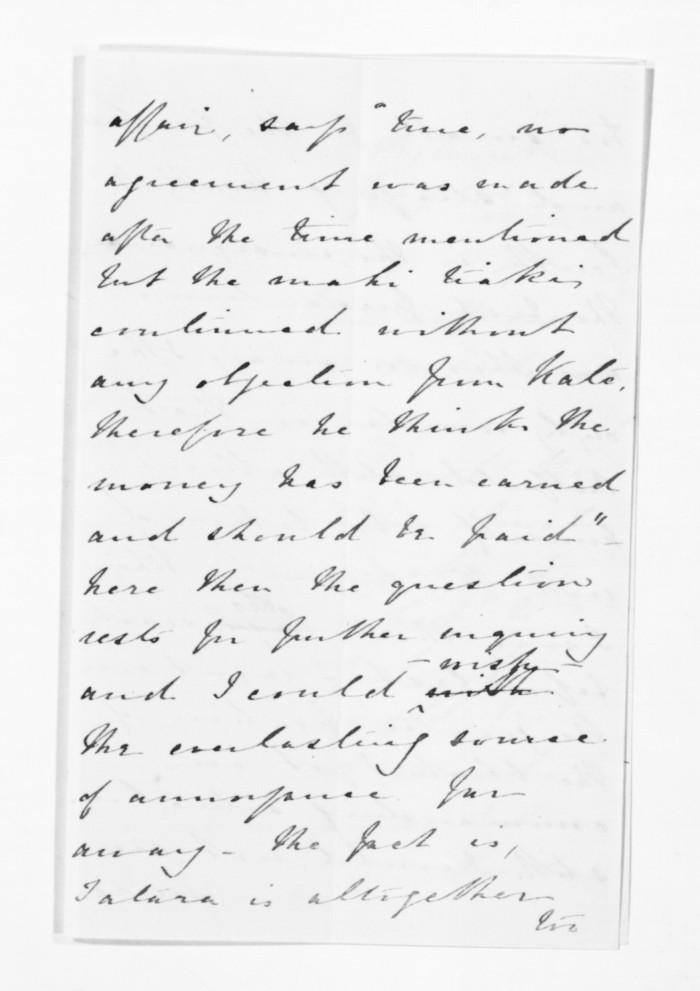 affair, says "true, no
agreement was made
after the time mentioned
but the mahi tiaki,
continued without
any objection from Kate,
therefore he thinks the
money has been earned
and should be paid" –
here then the question
rests for further inquiry
and I could – wish – wish
the everlasting source
of annoyance far
away – The fact is,
Tatara is altogether
too